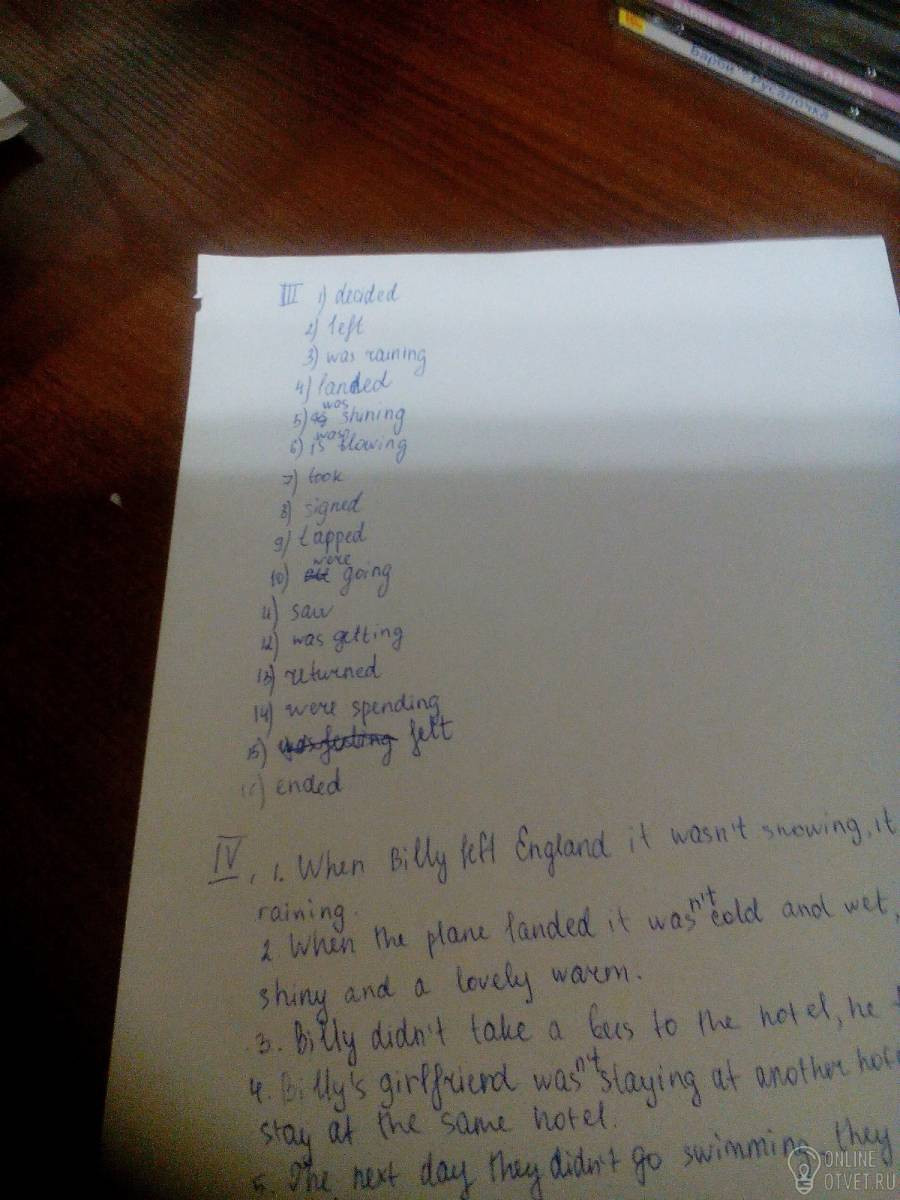 Барби Русалочка
III 1) decided
2) left
3) was raining
4) landed
5) was shining
6) is was blowing
7) took
8) signed
9) tapped
10) were going
11) saw
12) was getting
13) returned
14) were spending
15) was feeling felt
16) ended
IV. 1. When Billy left England it wasn't snowing, it
raining.
2. When the plane landed it wasn't cold and wet,
shiny and a lovely warm.
3. Billy didn't take a bus to the hotel, he
4. Billy's girlfriend wasn't staying at another
stay at the same hotel.
5. The next day they didn't go swimming, they
ONLINE
OTVET.RU